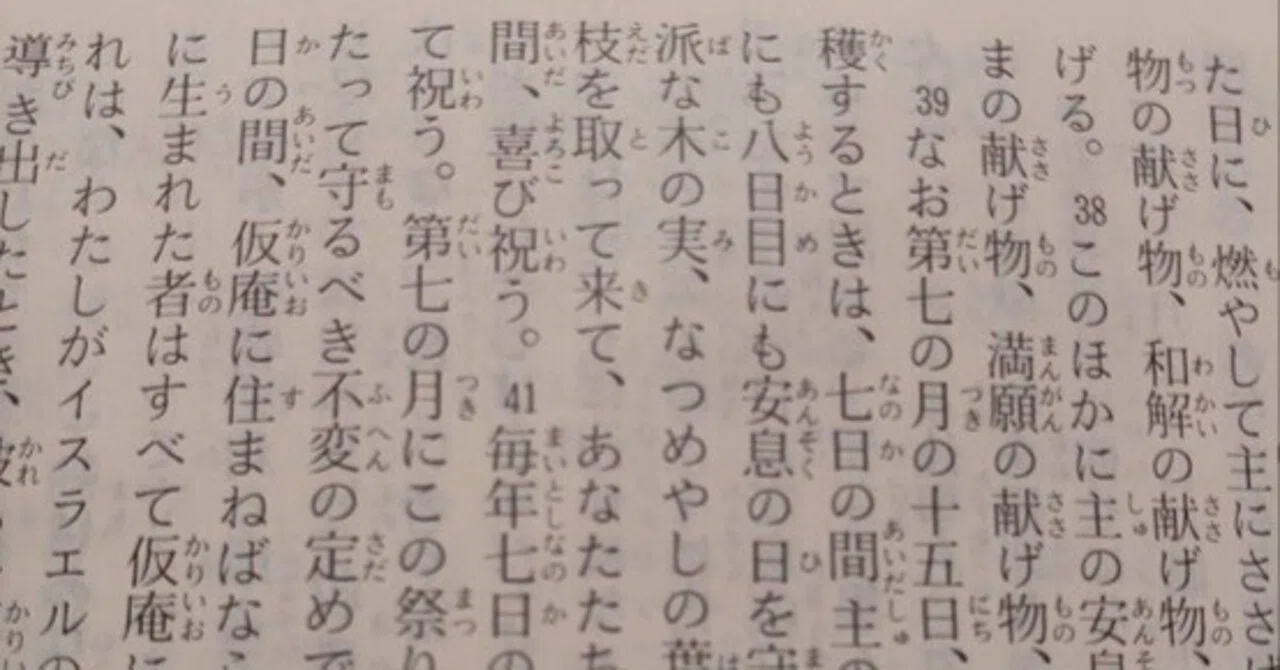 た日に、燃やして主にささ
物の献げ物、和解の献げ物、
げる。38このほかに主の安息
まの献げ物、満願の献げ物、
39なお第七の月の十五日、
穫するときは、七日の間主の
にも八日目にも安息の日を守
派な木の実、なつめやしの葉
枝を取って来て、あなたたち
間、喜び祝う。41毎年七日の
て祝う。第七の月にこの祭り
たって守るべき不変の定めで
日の間、仮庵に住まねばな
に生まれた者はすべて仮庵に
れは、わたしがイスラエルの
導き出したとき、彼